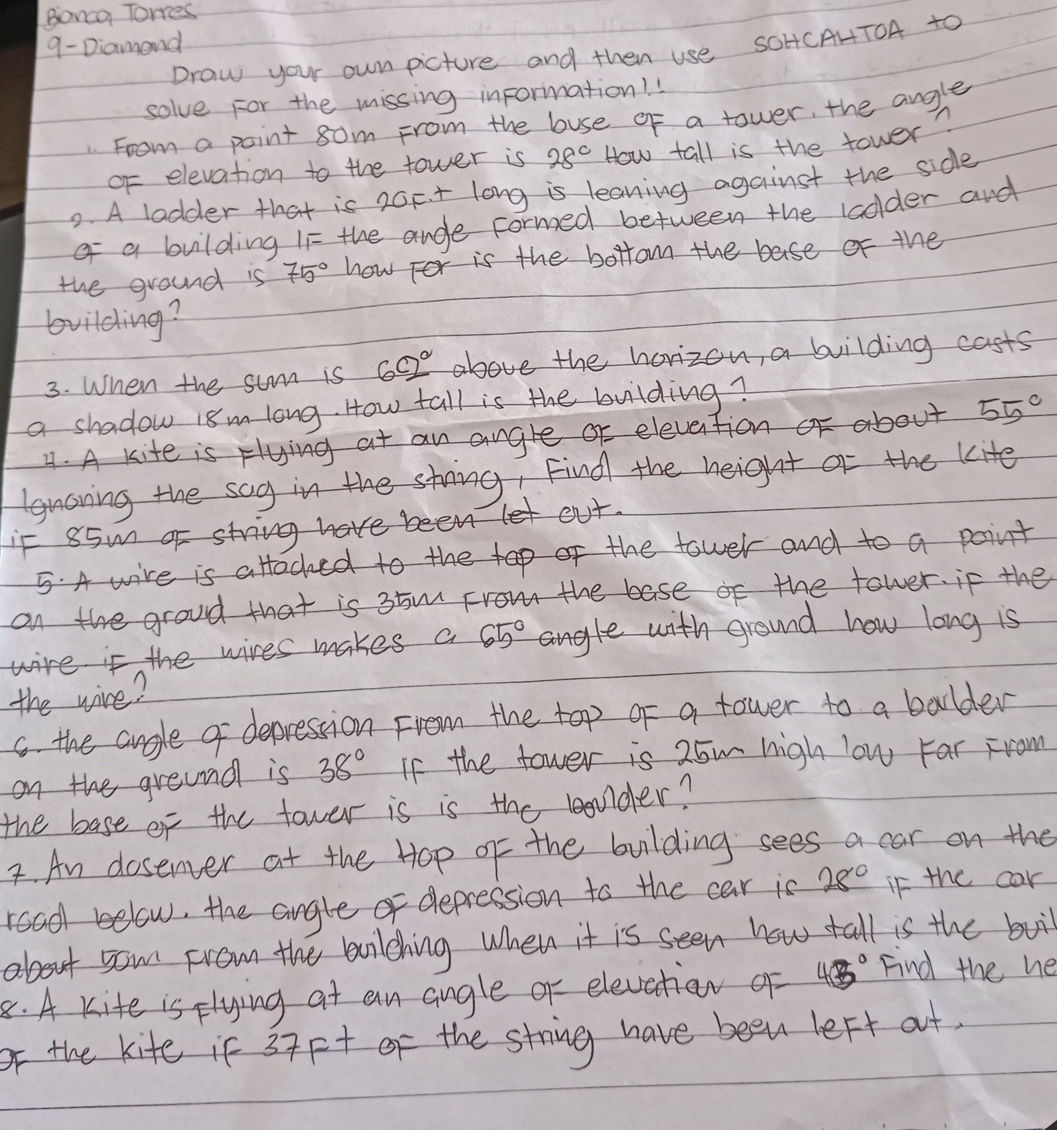 Bianca Torres
9-Diamond
Draw your own picture and then use SOHCAHTOA to
solve for the missing information!!
1. From a point 80m From the buse OF a tower, the angle
OF elevation to the tower is 28° How tall is the tower?
2. A ladder that is 20F.t long is leaning against the side
of a building IF the angle Formed between the ladder and
the ground is 75° how For is the bottom the base of the
building?
3. When the sum is 62° above the horizon, a building casts
a shadow 18m long. How tall is the building?
4. A Kite is Flying at an angle of elevation OF about 55°
Ignoring the sag in the string, Find the height OF the Kite
iF 85m OF string have been let out.
5. A wire is attached to the top of the tower and to a point
on the groud that is 35m From the base of the tower. if the
wire iF the wires makes a 65° angle with ground how long is
the wire?
6. the angle of depression From the top OF a tower to a boulder
on the ground is 38° iF the tower is 25m high low Far From
the base of the tower is is the boulder?
7. An doserver at the Hop of the building sees a car on the
road below. the angle of depression to the car is 28° iF the car
about 50m From the building when it is seen how tall is the buil
8. A Kite is Flying at an angle of elevation OF 43° Find the he
OF the kite iF 37Ft OF the string have been left out.